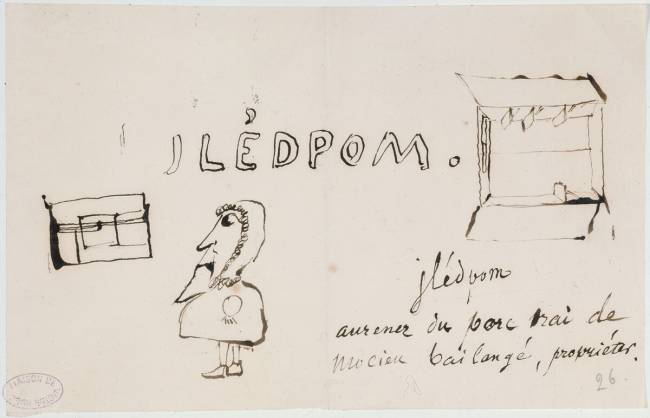 JLÉDPOM.
jlédpom
aurener du porc trai de
mocieu bailangé, propriéter.
26
MAISON DE